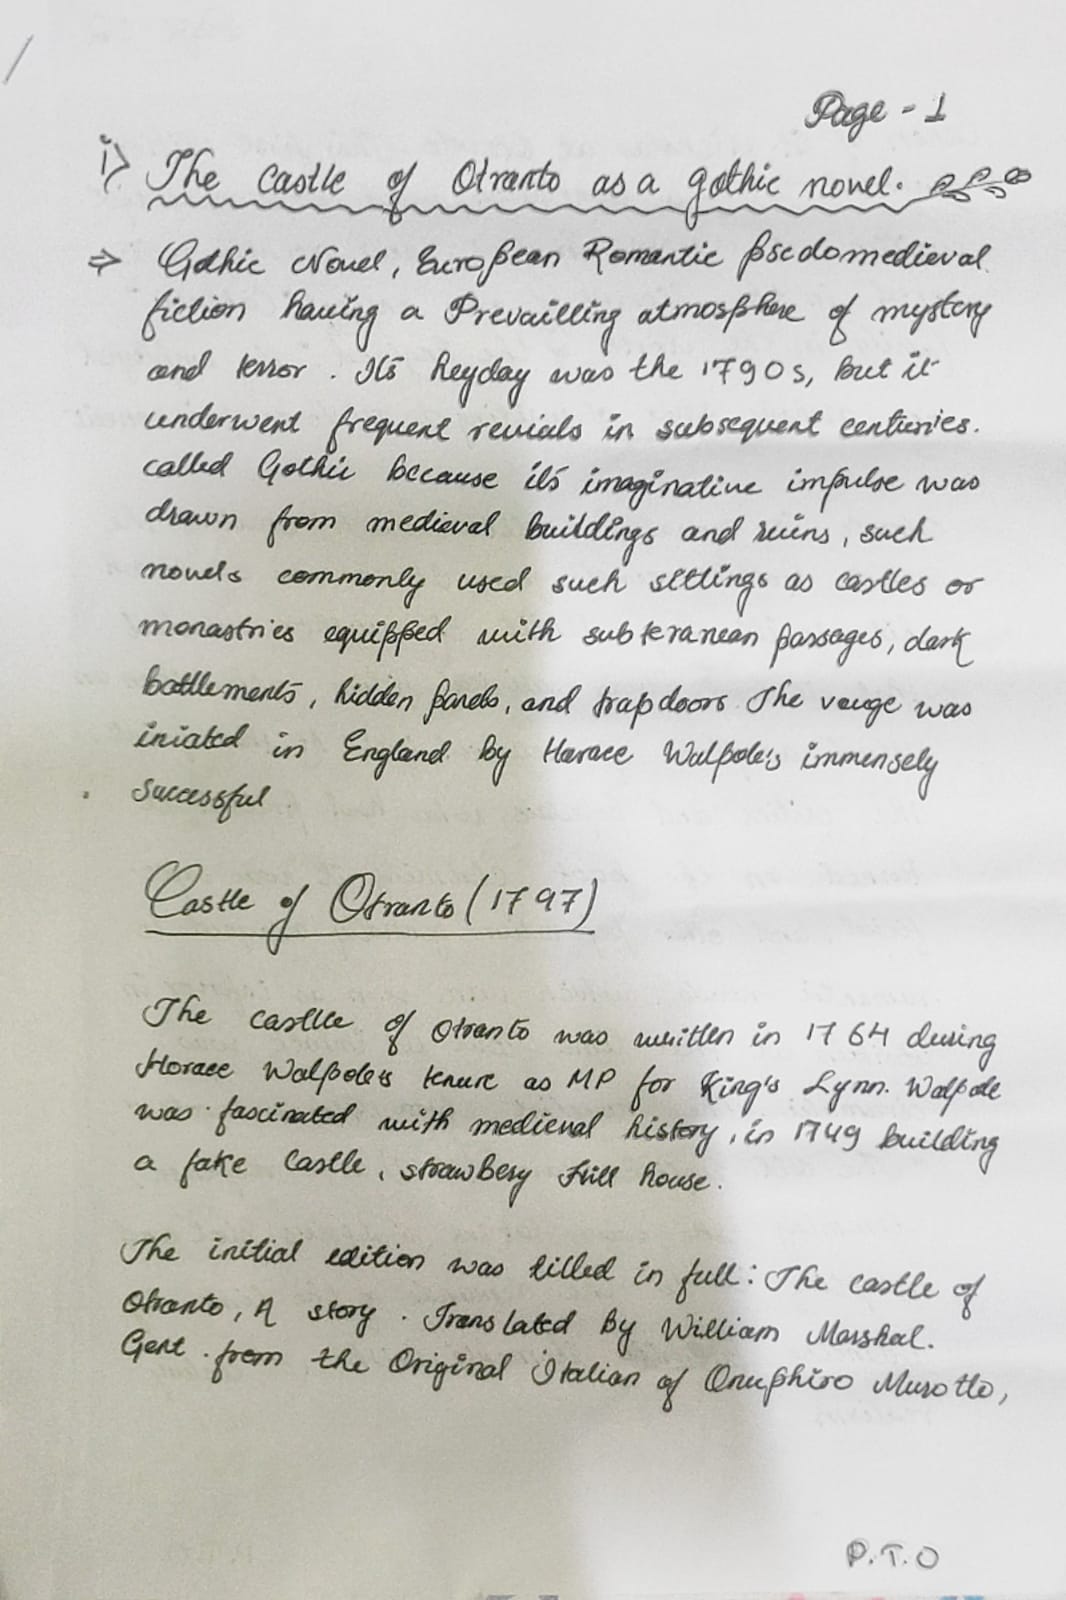 Page - 1
i) The Castle of Otranto as a gothic novel.
⇒ Gothic Novel, European Romantic psedomedieval
fiction having a Prevailling atmosphere of mystery
and terror. Its heyday was the 1790s, but it
underwent frequent revials in subsequent centuries.
called Gothic because its imaginative impulse was
drawn from medieval buildings and ruins, such
novels commonly used such settings as castles or
monastries equipped with subteranean passages, dark
battlements, hidden panels, and trapdoors The vouge was
iniated in England by Horace Walpole's immensely
successful
Castle of Otranto (1797)
The castlle of Otranto was written in 1764 during
Horace Walpole's tenure as MP for King's Lynn. Walpole
was fascinated with medieval history, in 1749 building
a fake Castle, strawbery Hill house.
The initial edition was titled in full: The castle of
Otranto, A story. Translated By William Marshal.
Gent. from the Original Italian of Onuphiro Murotto,
P.T.O